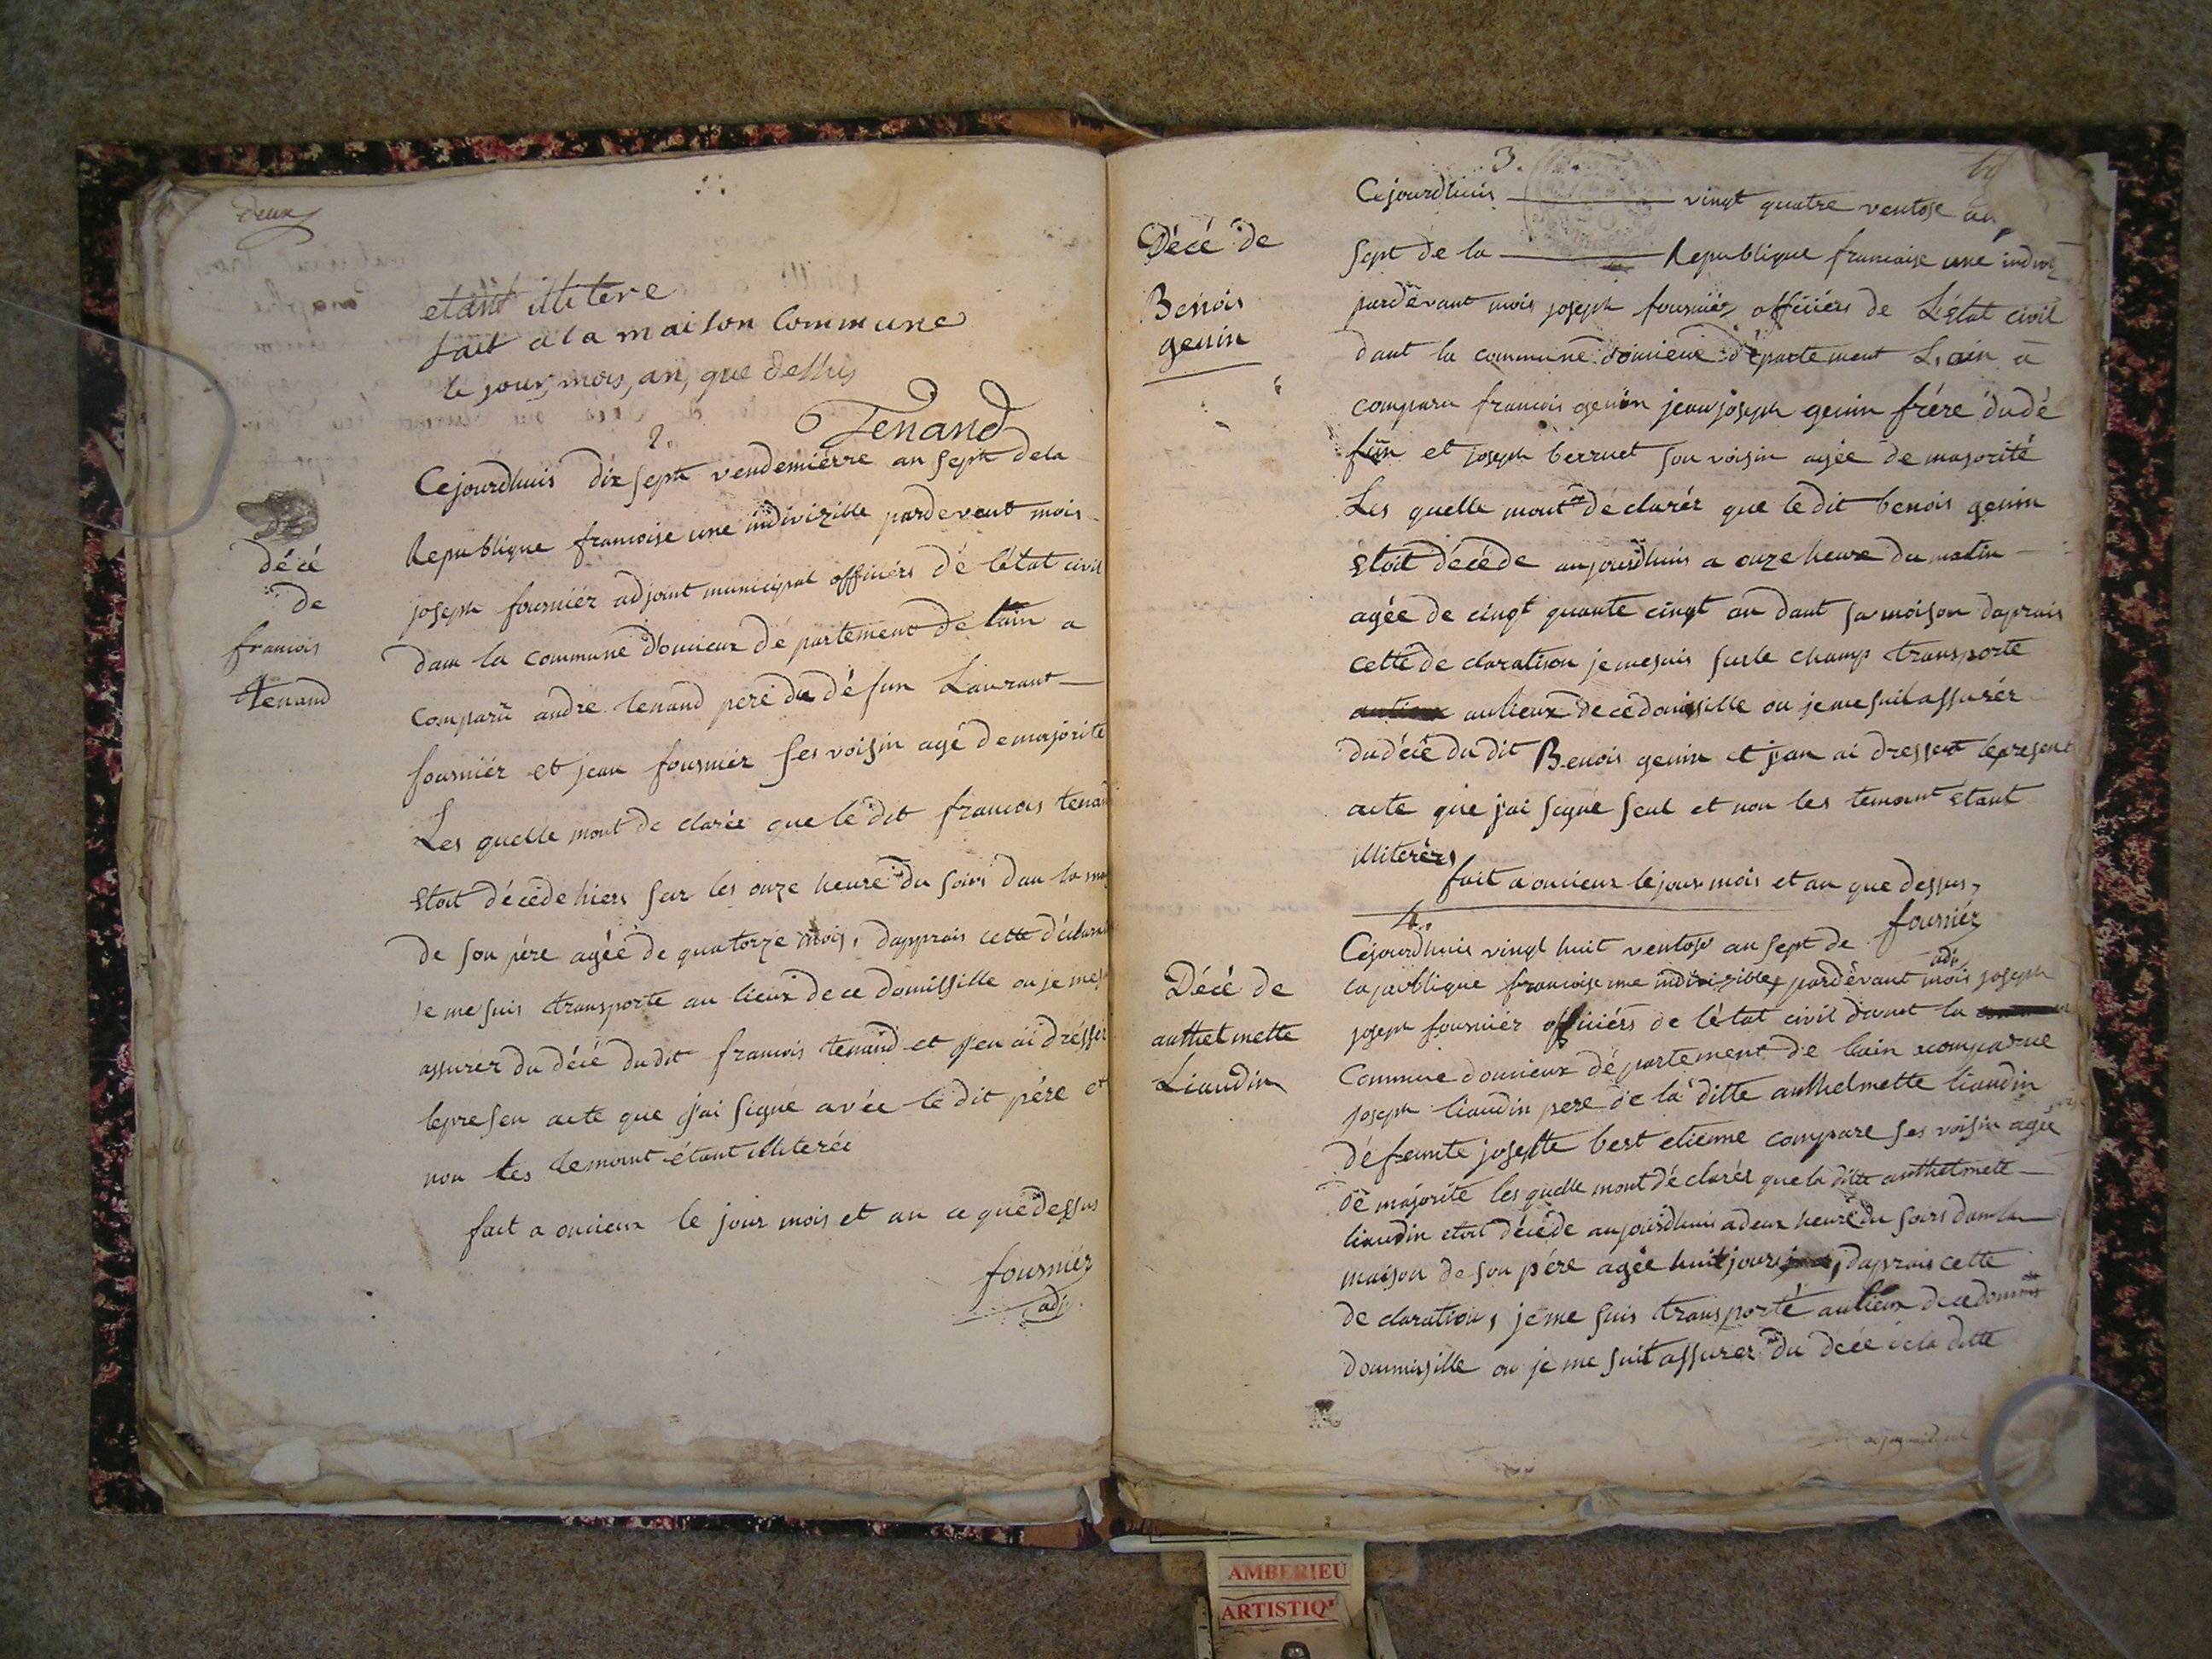 deux
etant illitere
fait a la maison Commune
le jour, mois, an, que dessus
Tenand
2.
décé
de
francois
tenand
Cejourdhuis dix sept vendemiérre an sept dela
Republique francoise une indivizible pardevant mois
joseph fourniér adjoint municipal officiérs dé létat civil
dan la commune doncieux dé partement de lain a
Comparu andré tenand pere du défun Laurant
fournier et jean fournier ses voisin agé demajorité
Les quelle mont de clarée que le dit francois tenand
Etoit décéde hiers sur les onze heure du soirs dan la
de son pére agéé de quatorze mois, dapprais cette
Je me suis transporte au lieux de ce domissille ou je me
assurer du décé du dit francois tenand et j'en ai dresser
le presen acte que j'ai signé avée le dit pére et
non les temoint étant illiterée
fait a oncieux le jour mois et an ce que dessus
fourniér
adj
3.
Décé de
Benois
genin
Cejourdhuis vingt quatre ventose an
sept de la Republique francaise une
pardevant mois joseph fourniér officiérs de L'état civil
dant la commune doncieux département Lain a
comparu francois genin jean joseph genin frére du dé
fun et joseph berruet son voisin agée de majorité
Les quelle mont déclarér que le dit benois genin
Etoit décéde aujourdhuis a onze heure du matin
agée de cinqt quante cinqt an dant sa maison daprais
cette de claration je me suis sur le champ transporte
au lieux de ce domissille ou je me suit assurér
du décé du dit Benois genin et j'an ai dressert le present
acte que j'ai signé seul et non les temoint etant
illiterérs
fait a oncieux le jour mois et an que dessus,
fourniér
adj
4.
Décé de
anthelmette
Liaudin
Cejourdhuis vingt huit ventose an sept de
la publique francoise une indivizible, pardévant mois joseph
joseph fourniér officiérs de létat civil dant la
Commune doncieux département de lain comparue
joseph liaudin pere de la ditte anthelmette liaudin
défeunte josephte best etienne compare ses voisin agée
de majorité les quelle mont dé clarér que la ditte anthelmett
liaudin etoit décéde aujourdhuis a deux heure du soirs dan la
maison de son pére agée huit jours, daprais cette
de claration, je me suis transporté au lieux de ce
dommissille ou je me suit assurer du décé de la ditte
AMBERIEU
ARTISTIQ